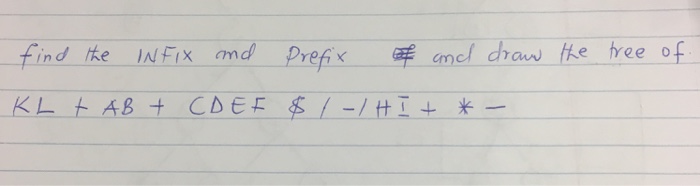 find the INFIX and Prefix and draw the tree of.
KL + AB + CDEF $ / - / HI + * -